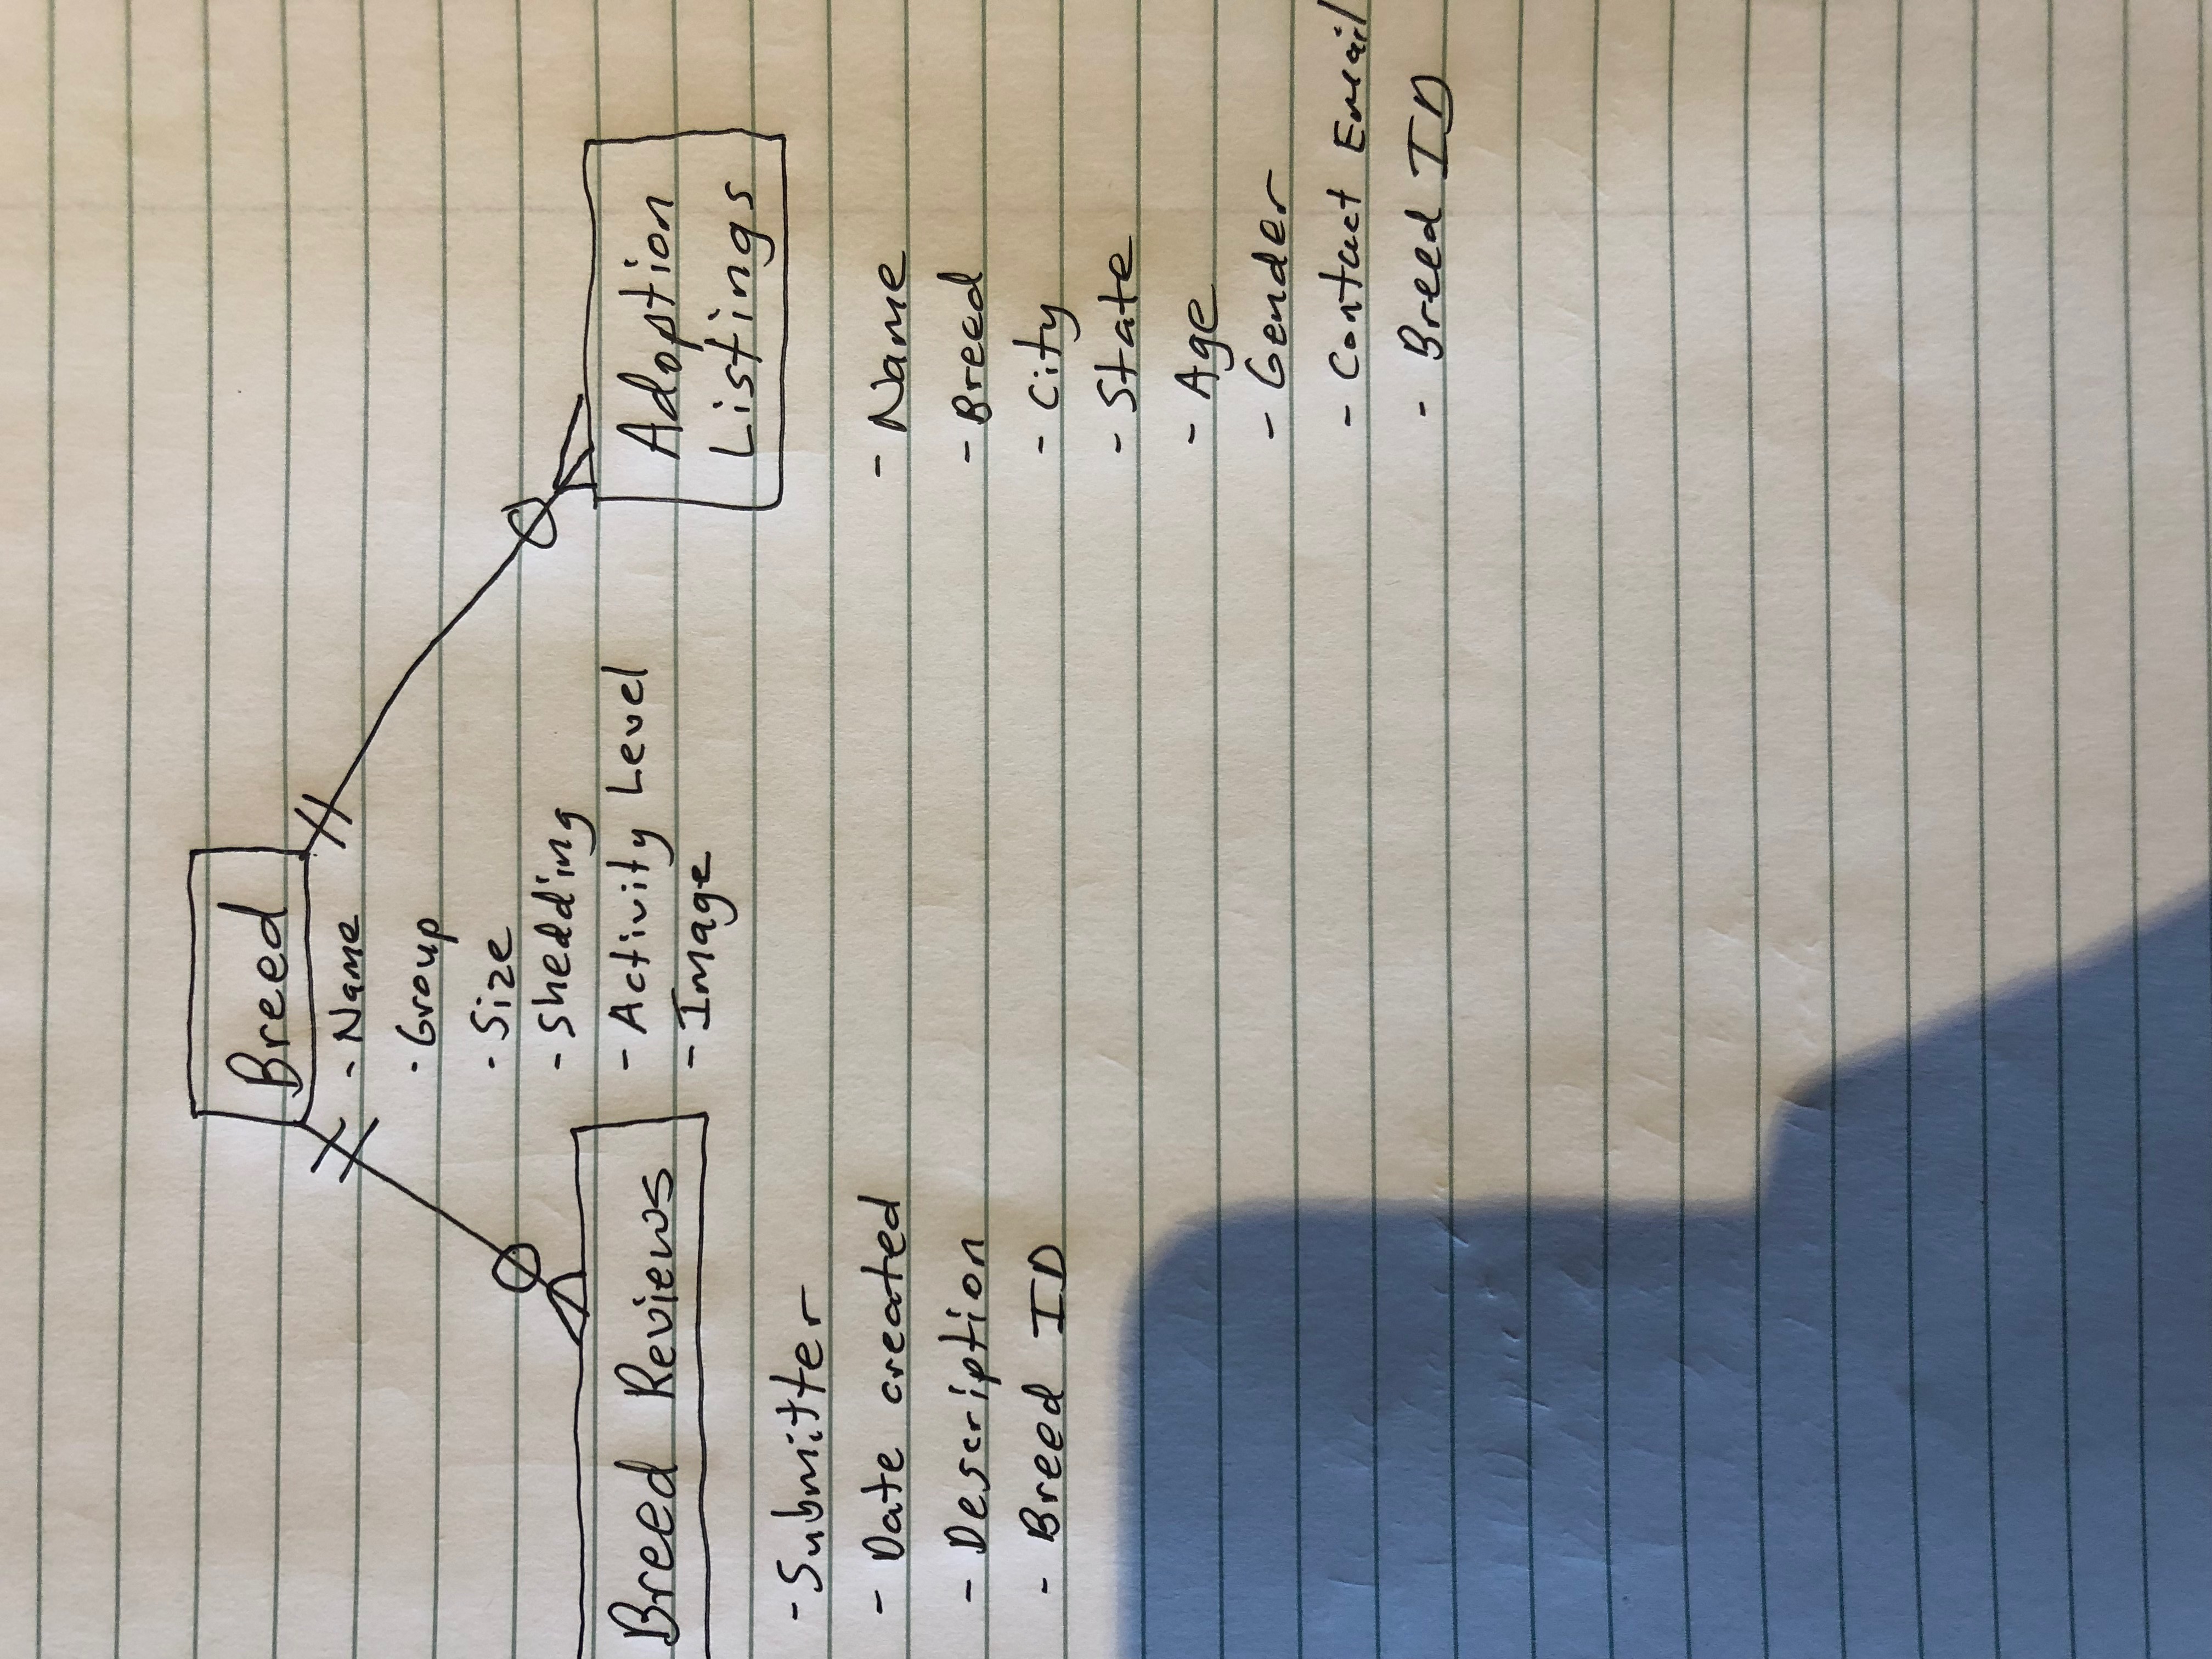 Breed
- Name
- Group
- Size
- Shedding
- Activity Level
- Image
Breed Reviews
- Submitter
- Date created
- Description
- Breed ID
Adoption
Listings
- Name
- Breed
- City
- State
- Age
- Gender
- Contact Email
- Breed ID